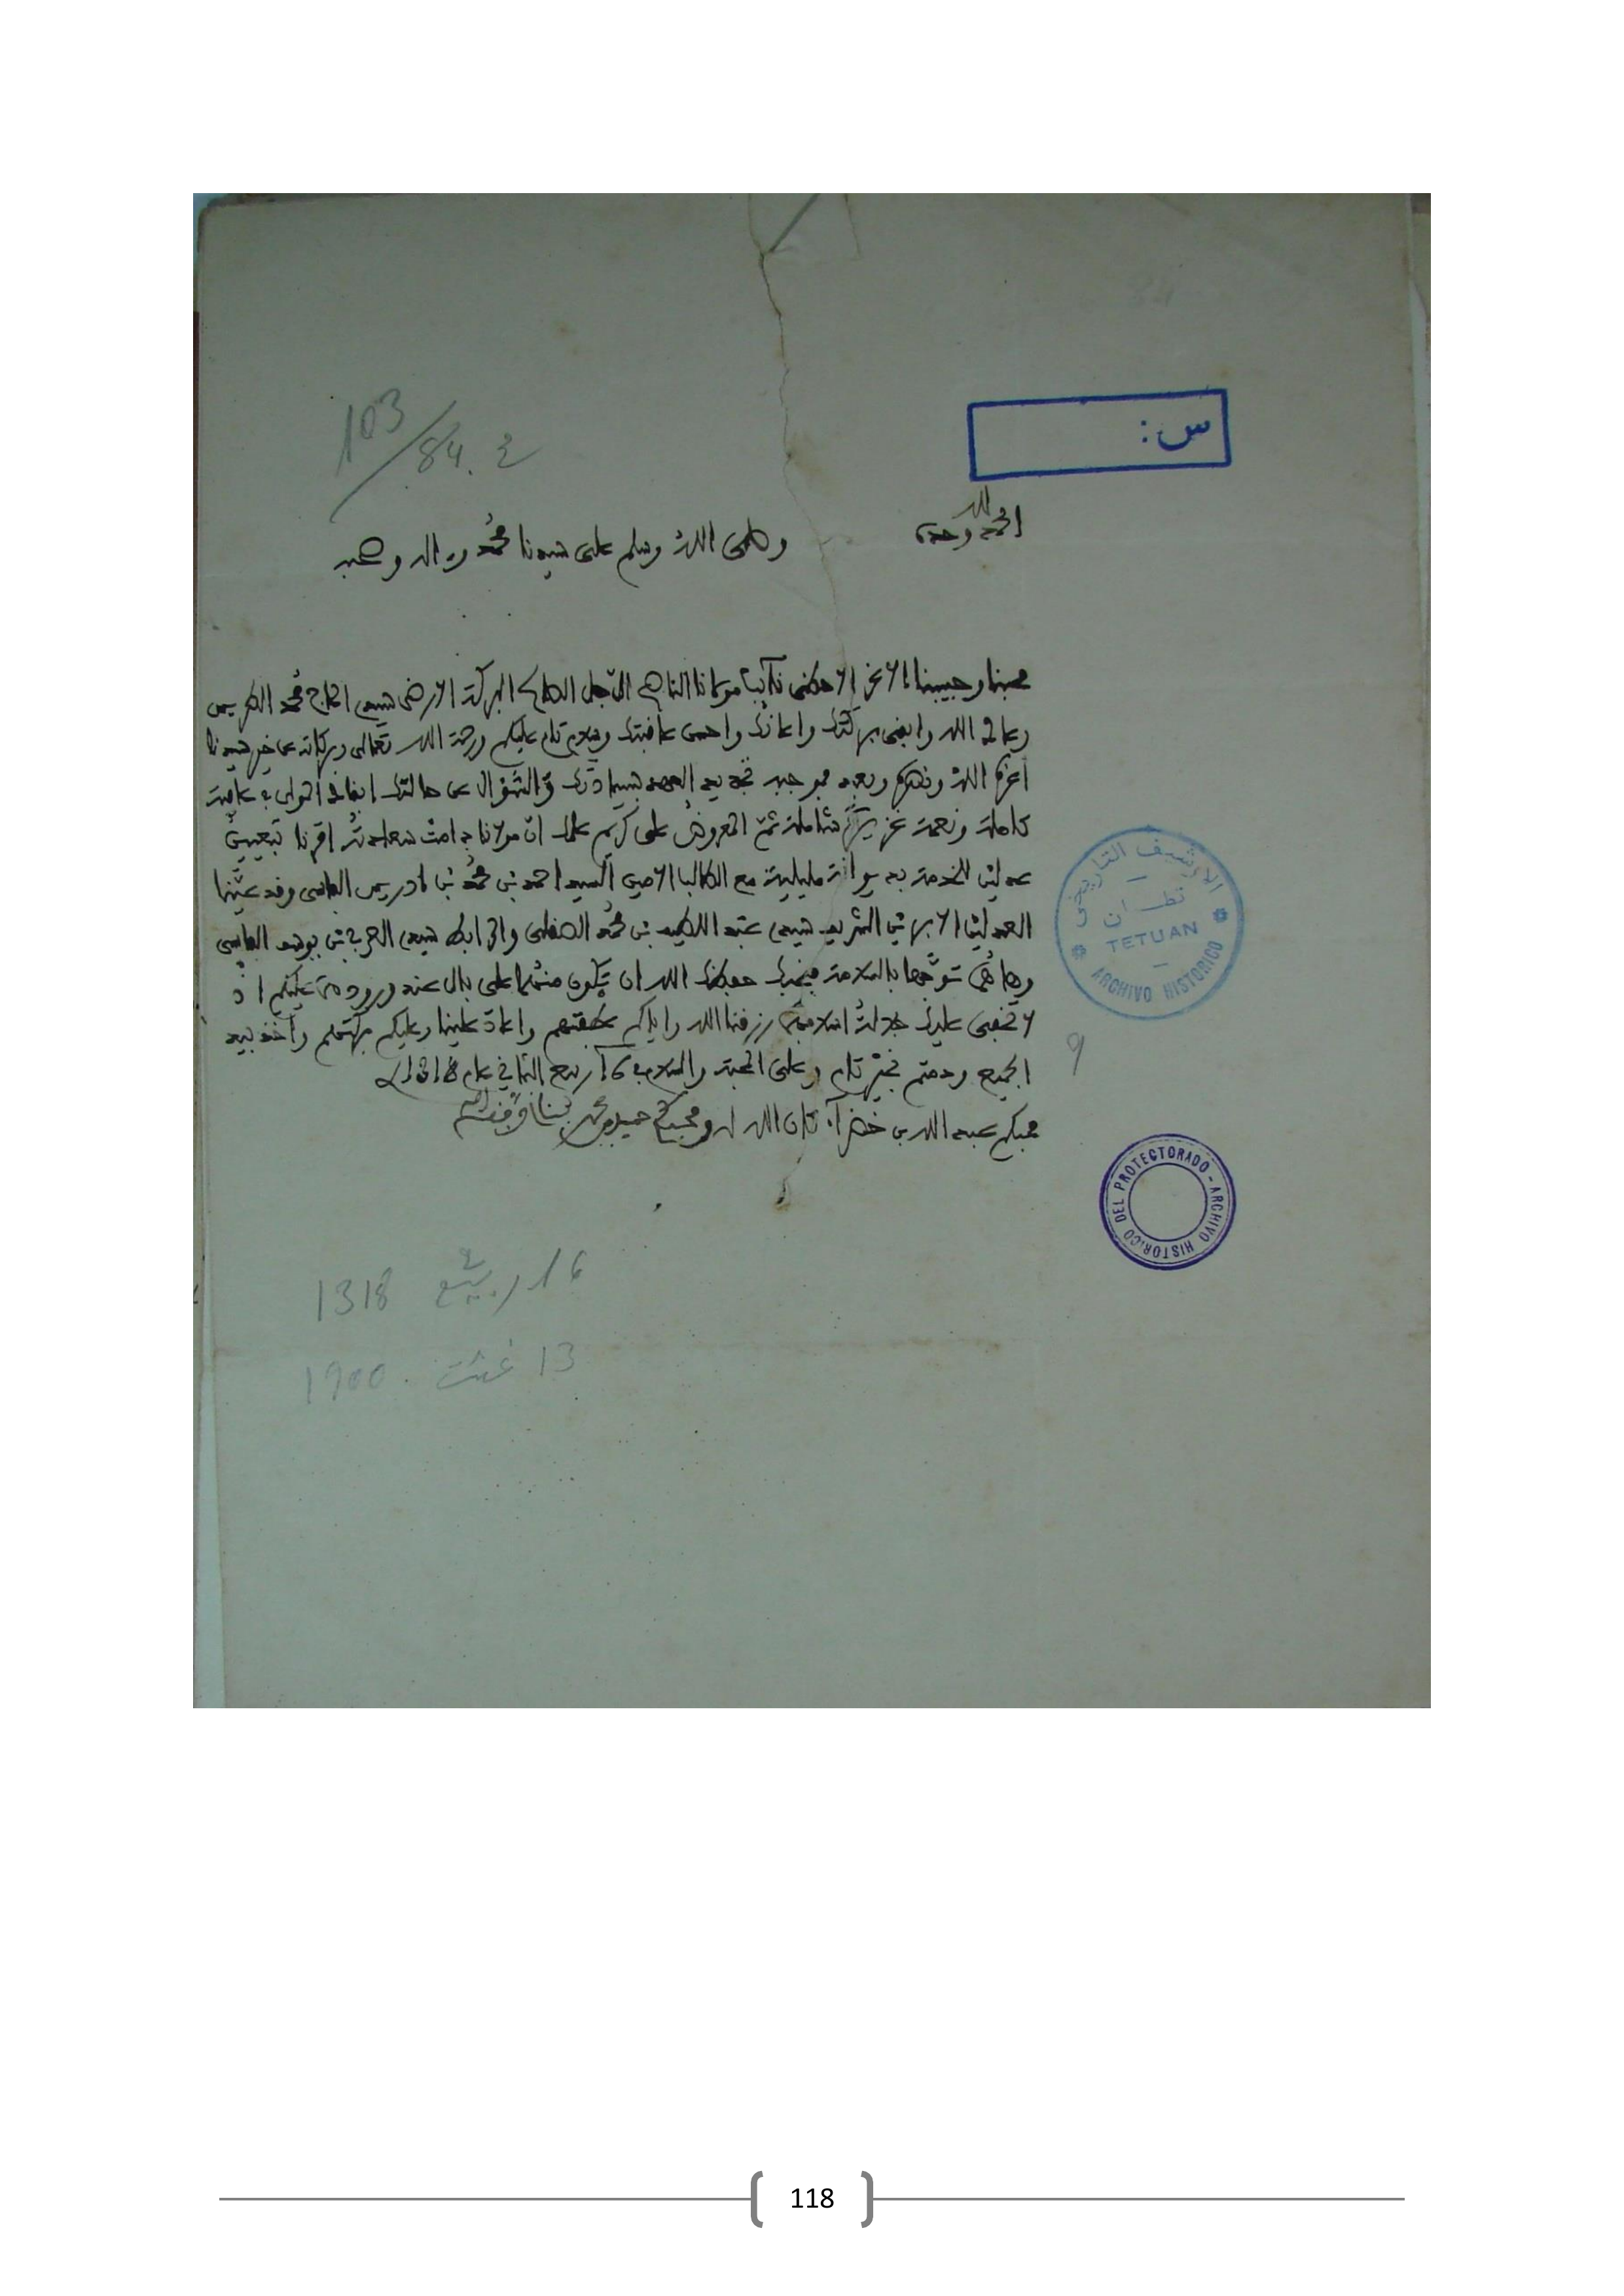 103/84. 2
س:
الحمد لله وحده
وصلى الله وسلم على سيدنا محمد وءاله وصحبه
محبنا وحبيبنا الاعز الاحظى نائب مولانا الناصح الاجل الصالح البركة الارضى سيدي الحاج محمد الطريس
رعاك الله وابقى بركتك واعانك واحسن عاقبتك وسلام تام عليكم ورحمة الله تعالى وبركاته عن خير سيدنا
أعزه الله ونصره وبعد فموجبه تجديد العهد بسيادتك والسؤال عن حالتك ابقاك المولى في عافية
كاملة ونعمة غزيرة شاملة ثم المعروض على كريم علمك ان مولانا دامت سعادته أمرنا بتعيين
عدلين للخدمة بديوانة مليلية مع الطالب الامين السيد احمد بن محمد بن ادريس الفاسي وقد عيننا
العدلين الابرين الشريف سيدي عبد اللطيف بن محمد الصقلي والمرابط سيدي العربي بن يوسف الفاسي
وهاهما توجها بالسلامة فنحبك حفظك الله ان تكون منهما على بال عند ورودهما عليكم اذ
لا تخفى عليك جلالة اسلافهما رزقنا الله واياكم محبتهم واعاد علينا وعليكم بركتهم وأخذ بيد
الجميع ودمتم بخير تام وعلى المحبة والسلام في 16 ربيع الثاني عام 1318
محبكم عبد الله بن خضراء كان الله له ومحبكم حميد بن محمد بناني وفقه الله
الأرشيف التاريخي
تطوان
TETUAN
ARCHIVO HISTORICO
9
DEL PROTECTORADO - ARCHIVO HISTORICO
16 ربيع 2 1318
13 غشت 1900
118